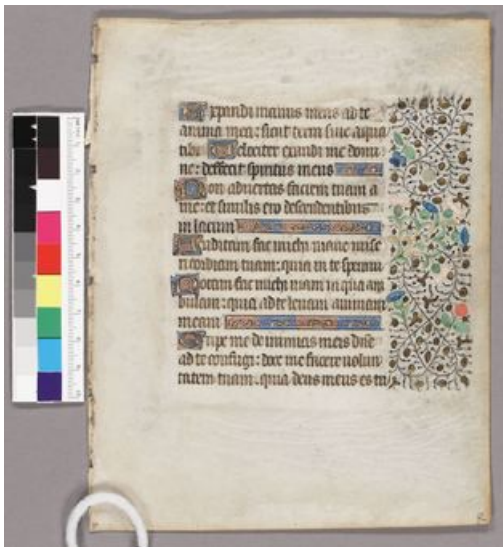 Expandi manus meas ad te
anima mea: sicut terra sine aqua
tibi Velociter exaudi me domi
ne: defecit spiritus meus
Non advertas faciem tuam a
me: et similis ero descendentibus
in lacum
Auditam fac michi mane mise
ricordiam tuam: quia in te speravi
Notam fac michi viam in qua am
bulem: quia ad te levavi animam
meam
Eripe me de inimicis meis dne
ad te confugi: doce me facere volun
tatem tuam: quia deus meus es tu